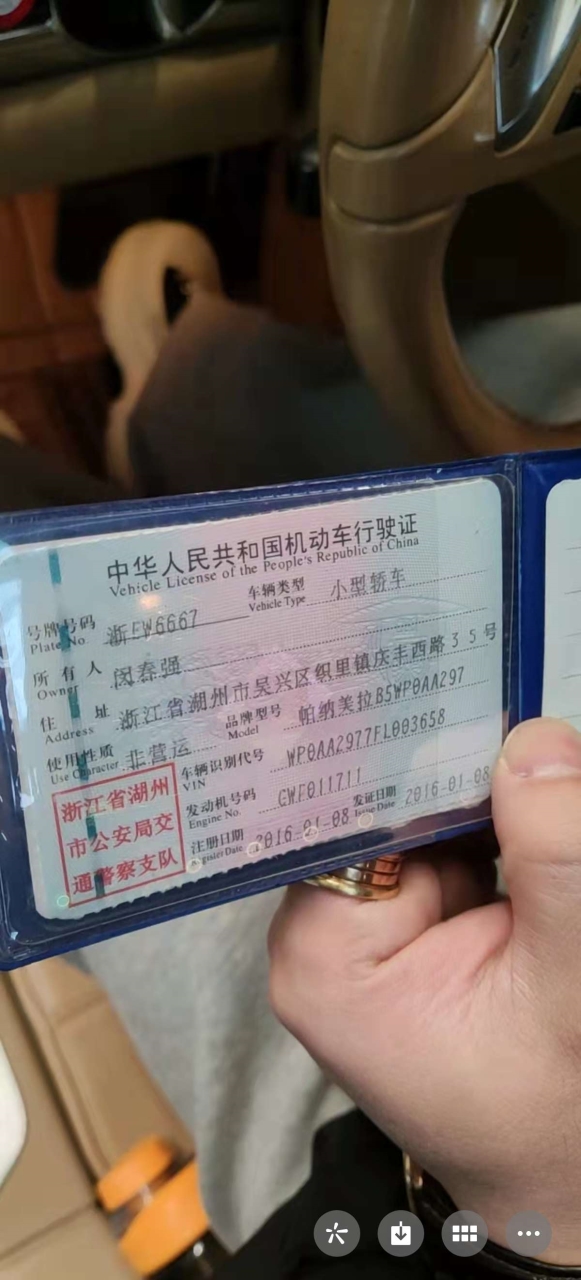 中华人民共和国机动车行驶证
Vehicle License of the People's Republic of China
号牌号码 浙FW6667 车辆类型 小型轿车
Plate No Vehicle Type
所有人 闵春强
Owner
住址 浙江省湖州市吴兴区织里镇庆丰西路35号
Address
使用性质 非营运 品牌型号 帕纳美拉B5WP0AA297
Use Character Model
车辆识别代号 WP0AA2977FL003658
VIN
发动机号码 CWF011711
Engine No.
注册日期 2016-01-08 发证日期 2016-01-08
Register Date Issue Date
浙江省湖州
市公安局交
通警察支队